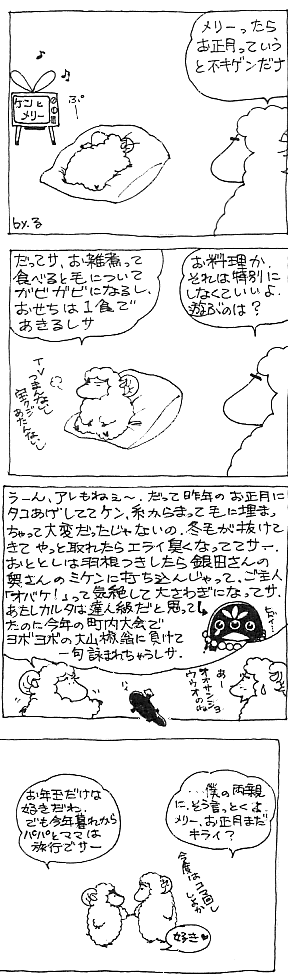 メリーったら
お正月っていう
と不キゲンだナ
ケンと
メリー
ぷ。
by.る
お料理か、
それは特別に
しなくていいよ.
遊ぶのは？
だってサ、お雑煮って
食べると毛について
ガビガビになるし、
おせちは1食で
あきるしサ
TV
つまんない
宝クジ
あたんない
うーん、アレもねェ〜. だって昨年のお正月に
タコあげしててケン、糸からまって毛に埋ま
ちゃって大変だったじゃないの。冬毛が抜けて
きてやっと取れたらエライ臭くなっててサー.
おととしは羽根つきしたら銀田さんの
奥さんのミケンに打ち込んじゃって、ご主人
「オバケ！」って気絶して大さわぎになってサ.
あたしカルタは達人級だと思って
たのに今年の町内大会で
ヨボヨボの大山椒翁に負けて
一句詠まれちゃうしサ.
あー
オオサンショ
ウウオのね
…僕の両親
に、そう言っとくよ.
メリー、お正月まだ
キライ？
お年玉だけな
好きだわ.
でも今年暮れから
パパとママは
旅行でサー
今度は
コマ回し
しようか
好き♥